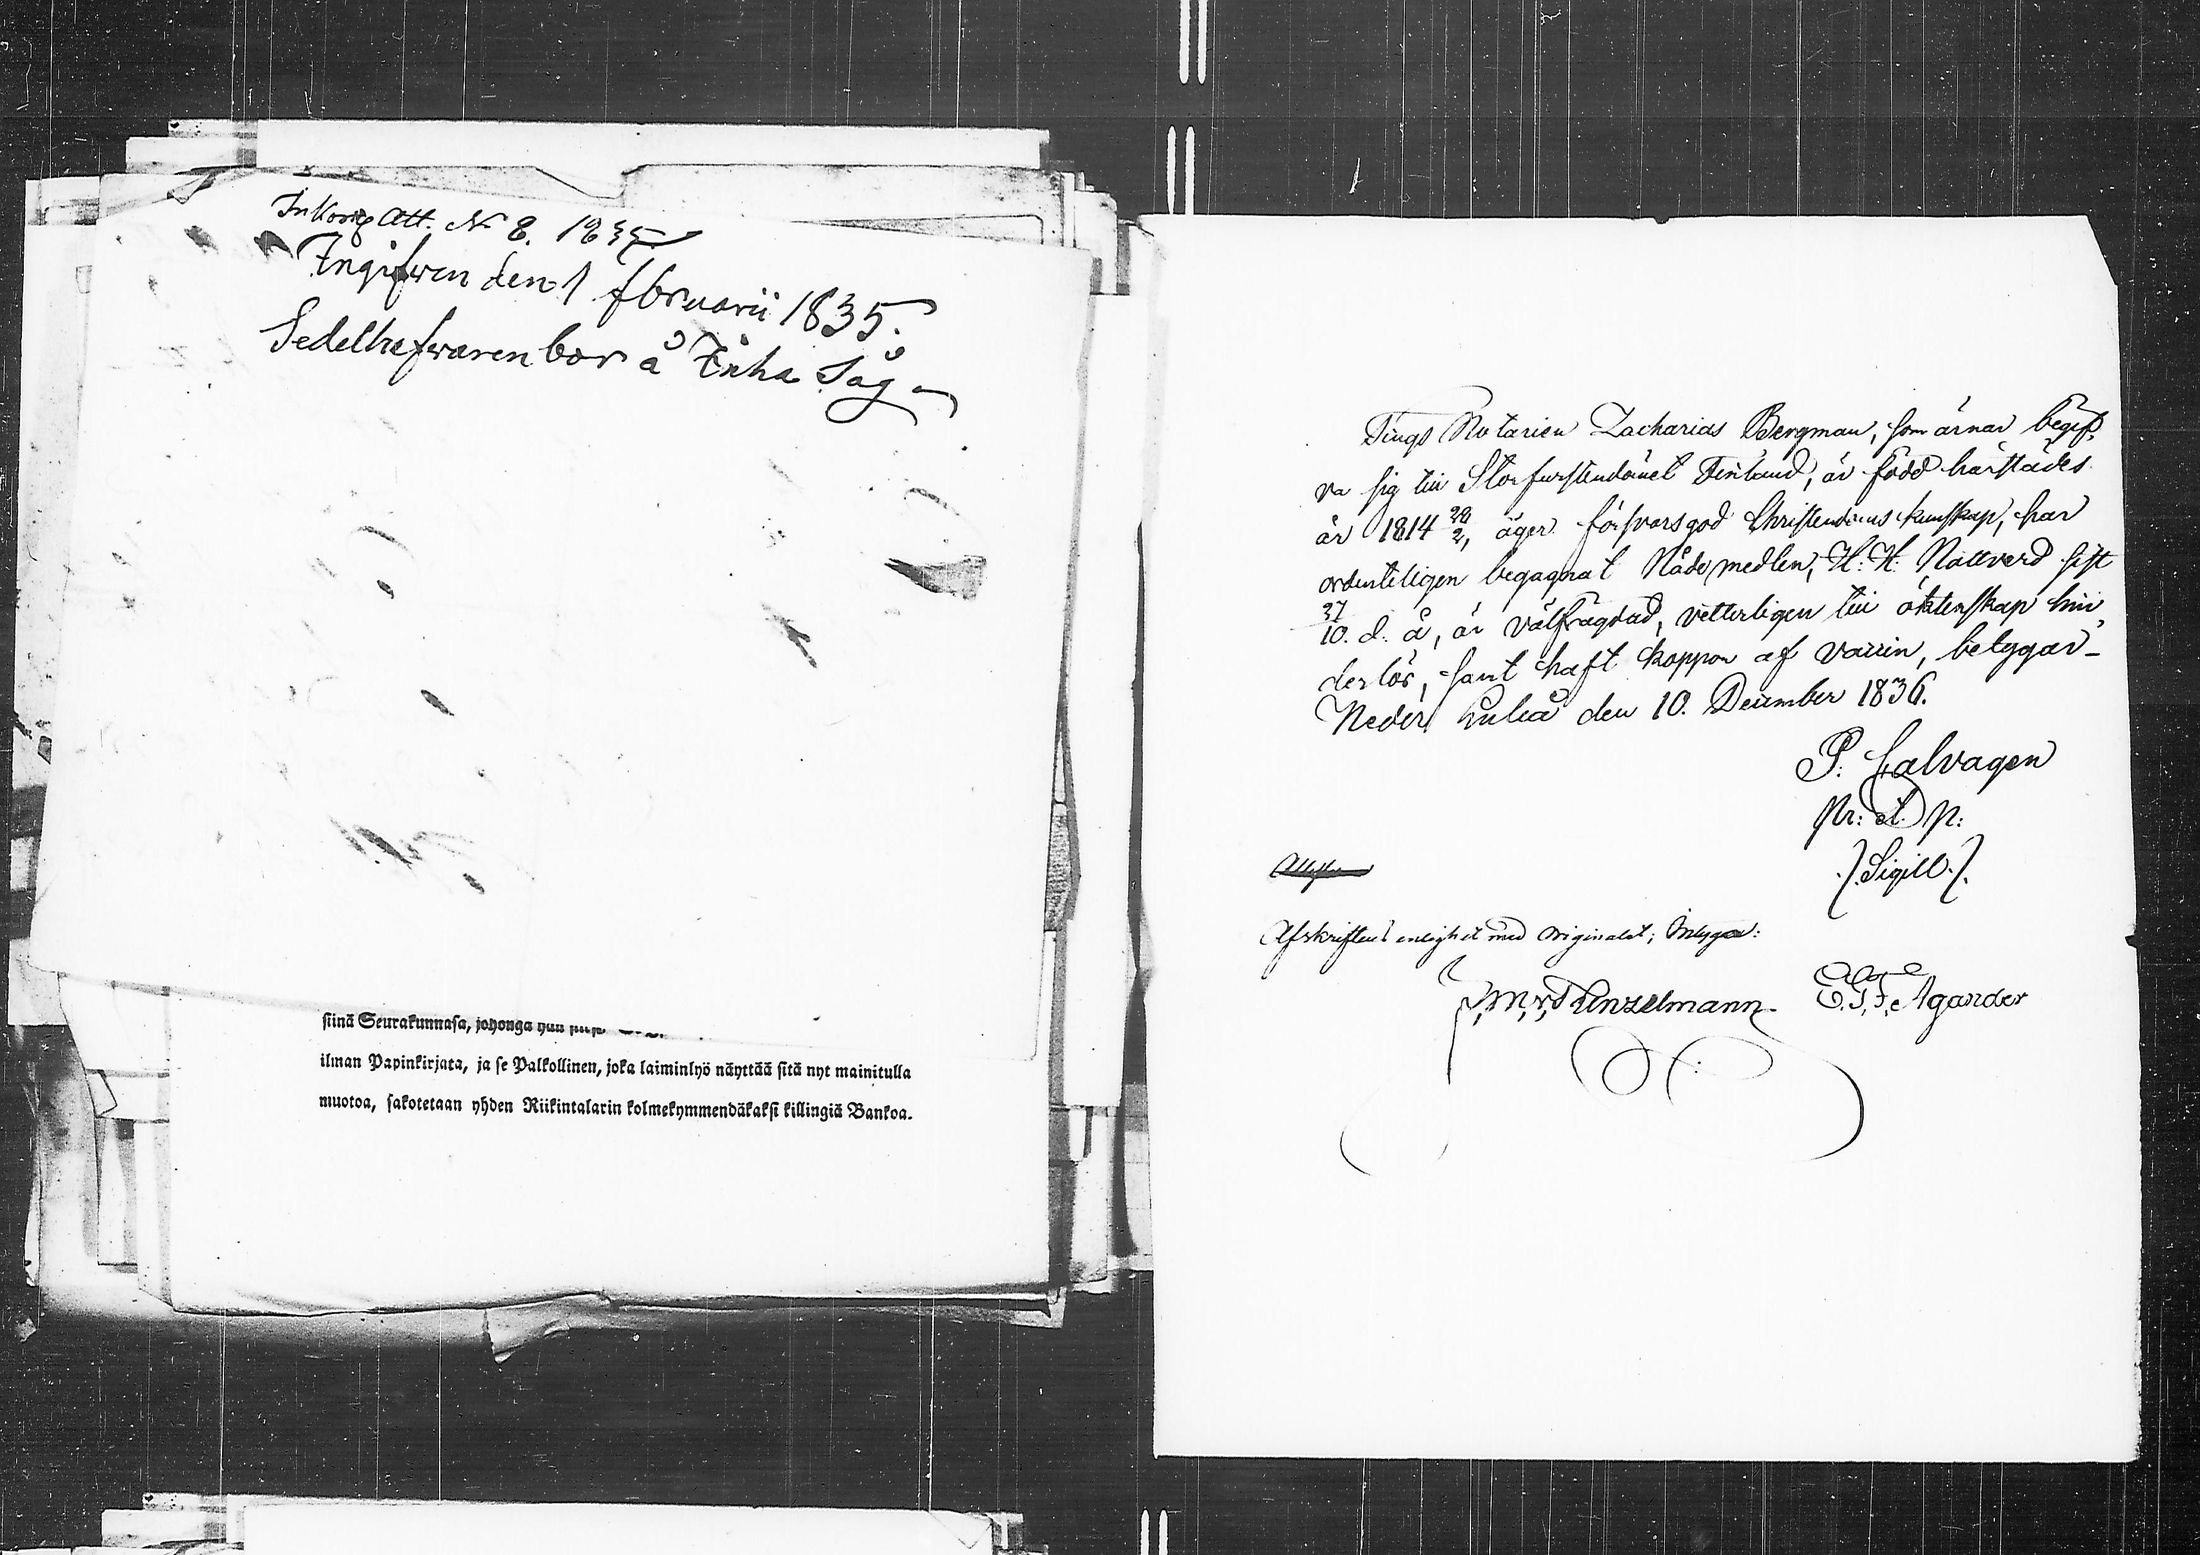 Inkomne Att. N 8. 1835
Ingifwen den 1 fbruarii 1835.
Sedelhafwaren bor å Inha Såg
siinä Seurakunnasa, johonga hän
ilman Papinkirjata, ja se Palkollinen, joka laiminlyö näyttää sitä nyt mainitulla
muotoa, sakotetaan yhden Riikintalarin kolmekymmendäkaksi killingiä Bankoa.
Tings Notarien Zacharias Bergman, som ärnar begif,
va sig till Storfurstendömet Finland, är född härstädes
år 1814 28/2, äger försvarsgod Christendoms kunskap, har
ordenteligen begagnat Nådemedlen, H. H. Nattverd sist
27/10. d. å, är välfrägdad, vetterligen till äktenskap hin,
derlös, samt haft koppor af vaccin, betygar_
Neder Luleå den 10. December 1836.
P. Calvagen
pr: et p:
/.Sigill./.
Afskriftens enlighet med originalet; betyga:
J, M, v, Thinzelmann. E. G. F. Agander